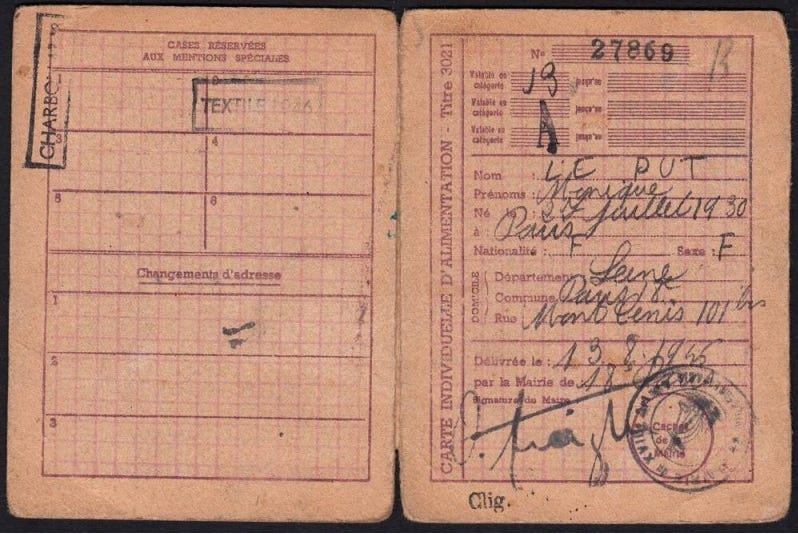 CASES RÉSERVÉES
AUX MENTIONS SPÉCIALES
TEXTILE
3
4
5
6
Changements d'adresse
1
2
3
CARTE INDIVIDUELLE D'ALIMENTATION - Titre 3021
No 27869
Valable en catégorie J3 jusqu'au
Valable en catégorie A jusqu'au
Valable en catégorie jusqu'au
Nom : LE DUT
Prénoms : Monique
Né le : 27 Juillet 1930
à : Paris
Nationalité : F Sexe : F
DOMICILE
Département Seine
Commune Paris 18e
Rue Mont Cenis 101 bis
Délivrée le : 13.8.1945
par la Mairie de 18e
Signature du Maire
Cachet
de la
Mairie
Clig.